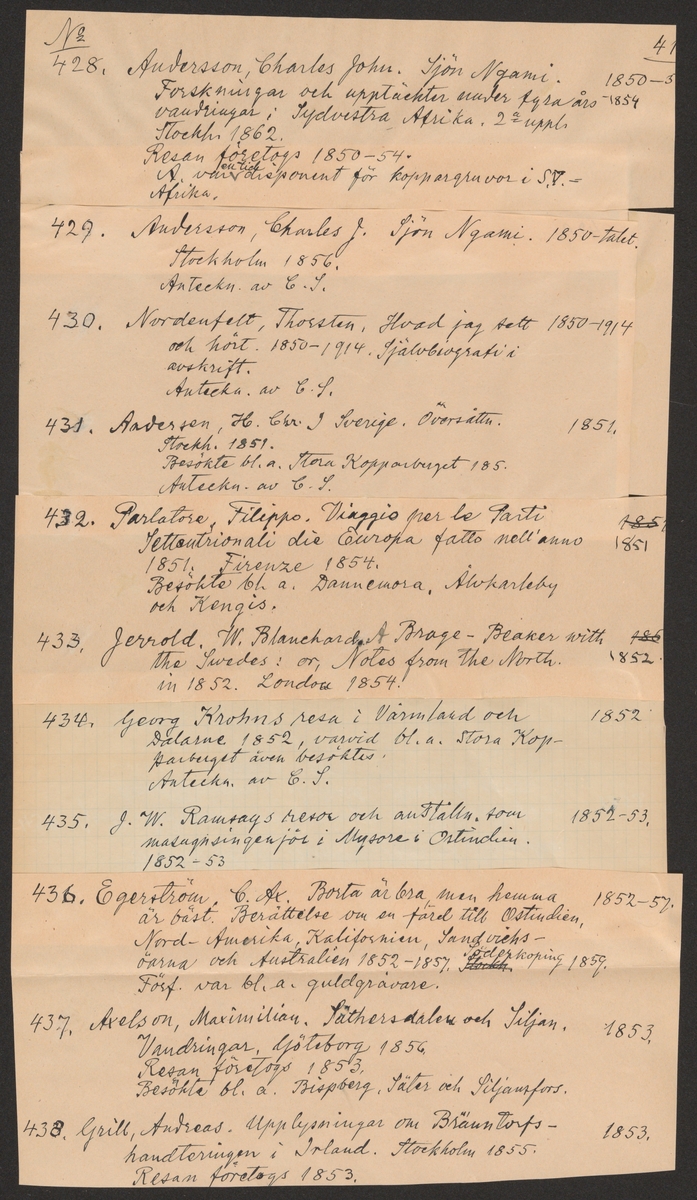 No 41
428. Andersson, Charles John. Sjön Ngami. 1850-5
Forskningar och upptäckter under fyra års -1854
vandringar i Sydvestra Afrika. 2a uppl.
Stockh. 1862.
Resan företogs 1850-54.
A. var en tid disponent för koppargruvor i S.V.=
Afrika.
429. Andersson, Charles J. Sjön Ngami. 1850-talet.
Stockholm 1856.
Anteckn. av C. S.
430. Nordenfelt, Thorsten, Hvad jag sett 1850-1914
och hört. 1850-1914. Självbiografi i
avskrift.
Anteckn. av C. S.
431. Andersen, H. Chr. I Sverige. Översättn. 1851.
Stockh. 1851.
Besökte bl.a. Stora Kopparberget 185.
Anteckn. av C. S.
432. Parlatore, Filippo. Viaggio per le Parti 1851
Settentrionali die Europa fatto nell'anno 1851
1851. Firenze 1854.
Besökte bl. a. Dannemora, Älvkarleby
och Kengis.
433. Jerrold. W. Blanchard, A Brage-Beaker with 186
the Swedes: or, Notes from the North. 1852.
in 1852. London 1854.
434. Georg Krohns resa i Värmland och 1852
Dalarne 1852, varvid bl.a. Stora Kop-
parberget även besöktes.
Anteckn. av C. S.
435. J. W. Ramsays resor och anställn. som 1852-53.
masugnsingenjör i Mysore i Ostindien.
1852-53
436. Egerström, C. Ax. Borta är bra, men hemma 1852-57.
är bäst. Berättelse om en färd till Ostindien,
Nord-Amerika, Kalifornien, Sandvichs-
öarna och Australien 1852-1857. Stockh. Söderköping 1859.
Förf. var bl.a. guldgrävare.
437. Axelson, Maximilian. Säthersdalen och Siljan. 1853.
Vandringar. Göteborg 1856.
Resan företogs 1853.
Besökte bl. a. Bispberg, Säter och Siljansfors.
438. Grill, Andreas. Upplysningar om Bränntorfs- 1853.
handteringen i Irland. Stockholm 1855.
Resan företogs 1853.